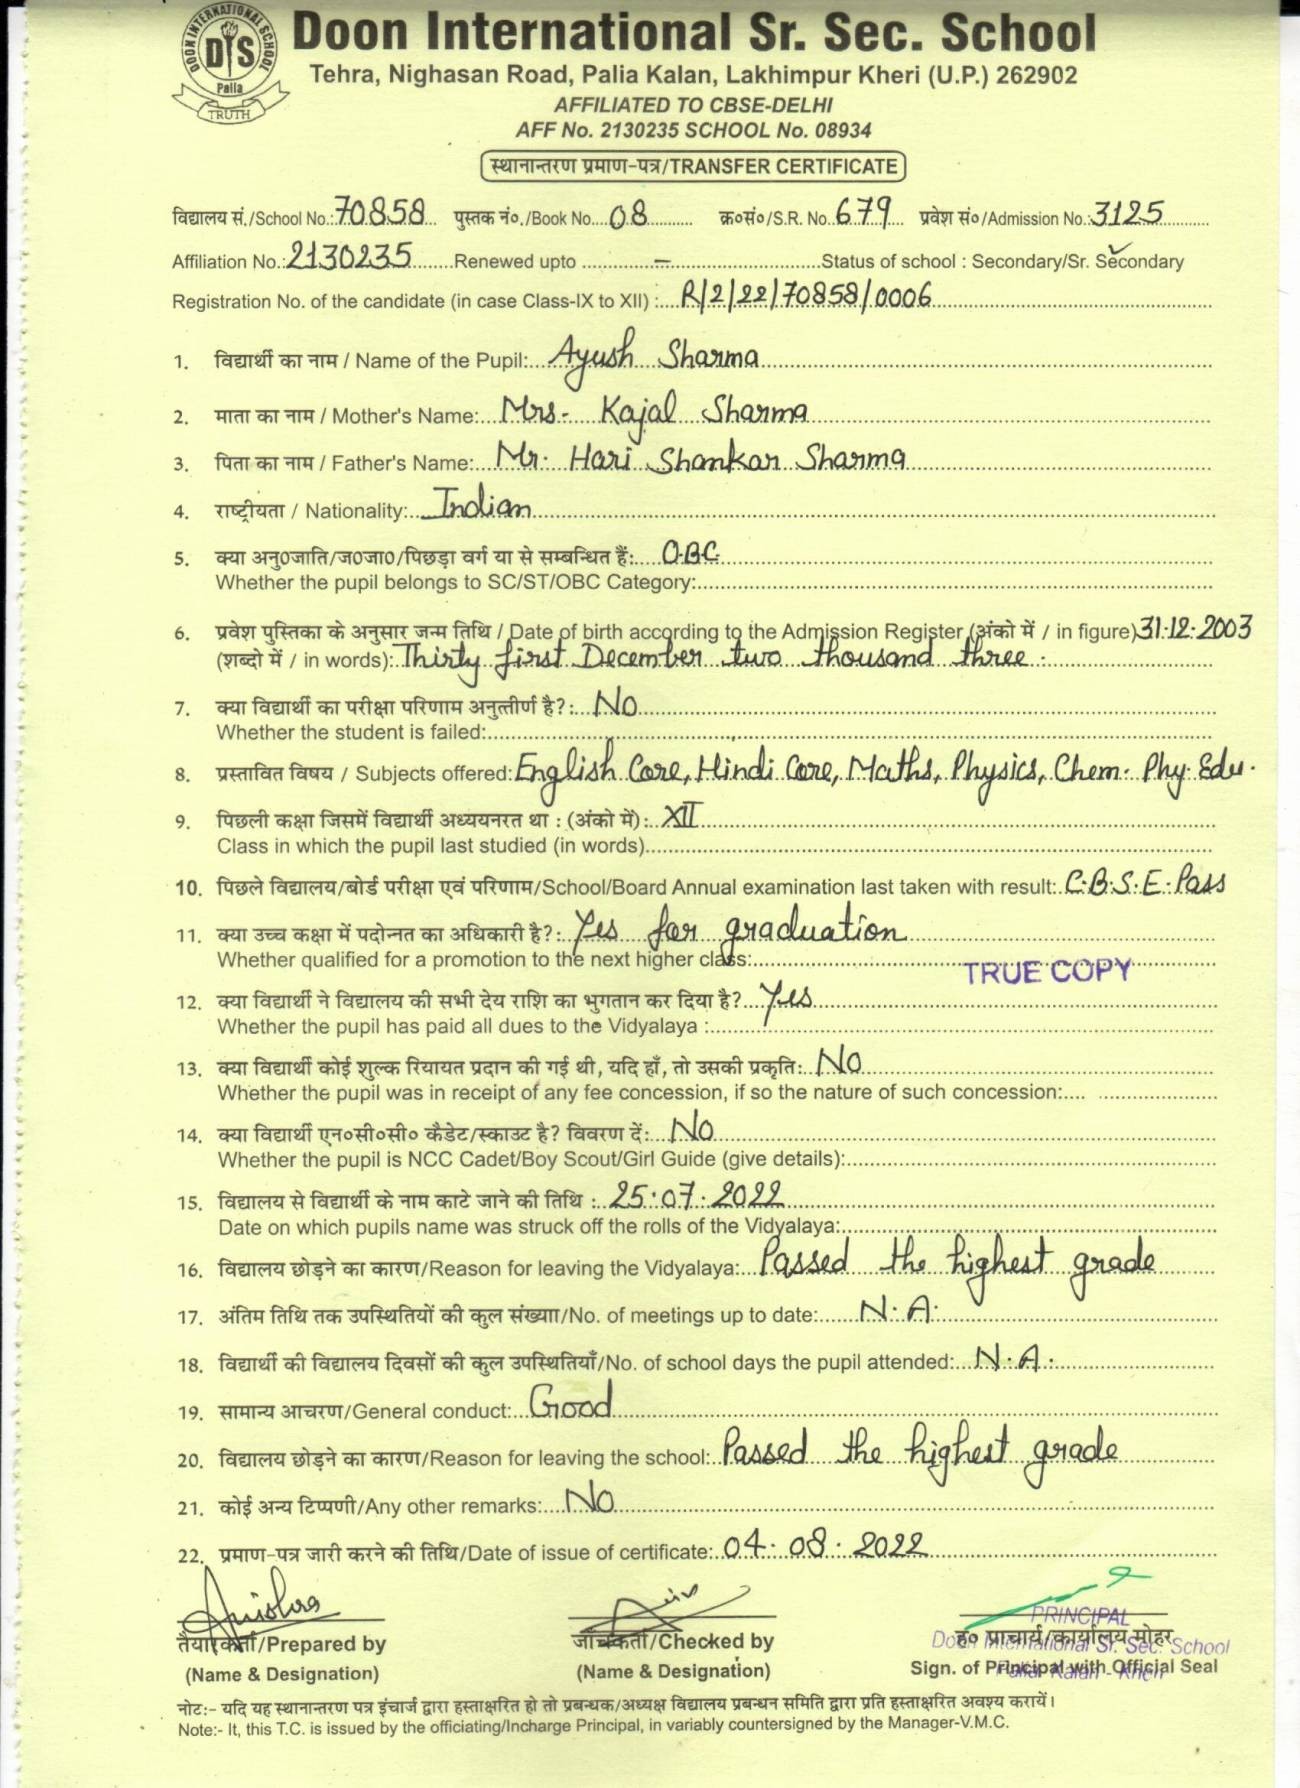 DOON INTERNATIONAL SCHOOL
DIS
Palia
TRUTH
Doon International Sr. Sec. School
Tehra, Nighasan Road, Palia Kalan, Lakhimpur Kheri (U.P.) 262902
AFFILIATED TO CBSE-DELHI
AFF No. 2130235 SCHOOL No. 08934
स्थानान्तरण प्रमाण-पत्र/TRANSFER CERTIFICATE
विद्यालय सं./School No.: 70858 पुस्तक नं०./Book No. 08 क्र०सं०/S.R. No. 679 प्रवेश सं०/Admission No.: 3125
Affiliation No.: 2130235 Renewed upto – Status of school : Secondary/Sr. Secondary
Registration No. of the candidate (in case Class-IX to XII) : R/2/22/70858/0006
1. विद्यार्थी का नाम / Name of the Pupil: Ayush Sharma
2. माता का नाम / Mother's Name: Mrs. Kajal Sharma
3. पिता का नाम / Father's Name: Mr. Hari Shankar Sharma
4. राष्ट्रीयता / Nationality: Indian
5. क्या अनु०जाति/ज०जा०/पिछड़ा वर्ग या से सम्बन्धित हैं: O.B.C.
Whether the pupil belongs to SC/ST/OBC Category:
6. प्रवेश पुस्तिका के अनुसार जन्म तिथि / Date of birth according to the Admission Register (अंको में / in figure) 31.12.2003
(शब्दो में / in words): Thirty first December two thousand three.
7. क्या विद्यार्थी का परीक्षा परिणाम अनुत्तीर्ण है?: No
Whether the student is failed:
8. प्रस्तावित विषय / Subjects offered: English Core, Hindi Core, Maths, Physics, Chem. Phy. Edu.
9. पिछली कक्षा जिसमें विद्यार्थी अध्ययनरत था : (अंको में): XII
Class in which the pupil last studied (in words)
10. पिछले विद्यालय/बोर्ड परीक्षा एवं परिणाम/School/Board Annual examination last taken with result: C.B.S.E. Pass
11. क्या उच्च कक्षा में पदोन्नत का अधिकारी है?: Yes for graduation
Whether qualified for a promotion to the next higher class:
TRUE COPY
12. क्या विद्यार्थी ने विद्यालय की सभी देय राशि का भुगतान कर दिया है? Yes
Whether the pupil has paid all dues to the Vidyalaya :
13. क्या विद्यार्थी कोई शुल्क रियायत प्रदान की गई थी, यदि हाँ, तो उसकी प्रकृति: No
Whether the pupil was in receipt of any fee concession, if so the nature of such concession:
14. क्या विद्यार्थी एन०सी०सी० कैडेट/स्काउट है? विवरण दें: No
Whether the pupil is NCC Cadet/Boy Scout/Girl Guide (give details):
15. विद्यालय से विद्यार्थी के नाम काटे जाने की तिथि : 25.07.2022
Date on which pupils name was struck off the rolls of the Vidyalaya:
16. विद्यालय छोड़ने का कारण/Reason for leaving the Vidyalaya: Passed the highest grade
17. अंतिम तिथि तक उपस्थितियों की कुल संख्याा/No. of meetings up to date: N.A.
18. विद्यार्थी की विद्यालय दिवसों की कुल उपस्थितियाँ/No. of school days the pupil attended: N.A.
19. सामान्य आचरण/General conduct: Good
20. विद्यालय छोड़ने का कारण/Reason for leaving the school: Passed the highest grade
21. कोई अन्य टिप्पणी/Any other remarks: No
22. प्रमाण-पत्र जारी करने की तिथि/Date of issue of certificate: 04.08.2022
तैयारकर्ता/Prepared by जाँचकर्ता/Checked by ह० प्राचार्य/कार्यालय मोहर
PRINCIPAL
Doon International Sr. Sec. School
Palia Kalan - Kheri
(Name & Designation) (Name & Designation) Sign. of Principal with Official Seal
नोट:- यदि यह स्थानान्तरण पत्र इंचार्ज द्वारा हस्ताक्षरित हो तो प्रबन्धक/अध्यक्ष विद्यालय प्रबन्धन समिति द्वारा प्रति हस्ताक्षरित अवश्य करायें।
Note:- It, this T.C. is issued by the officiating/Incharge Principal, in variably countersigned by the Manager-V.M.C.